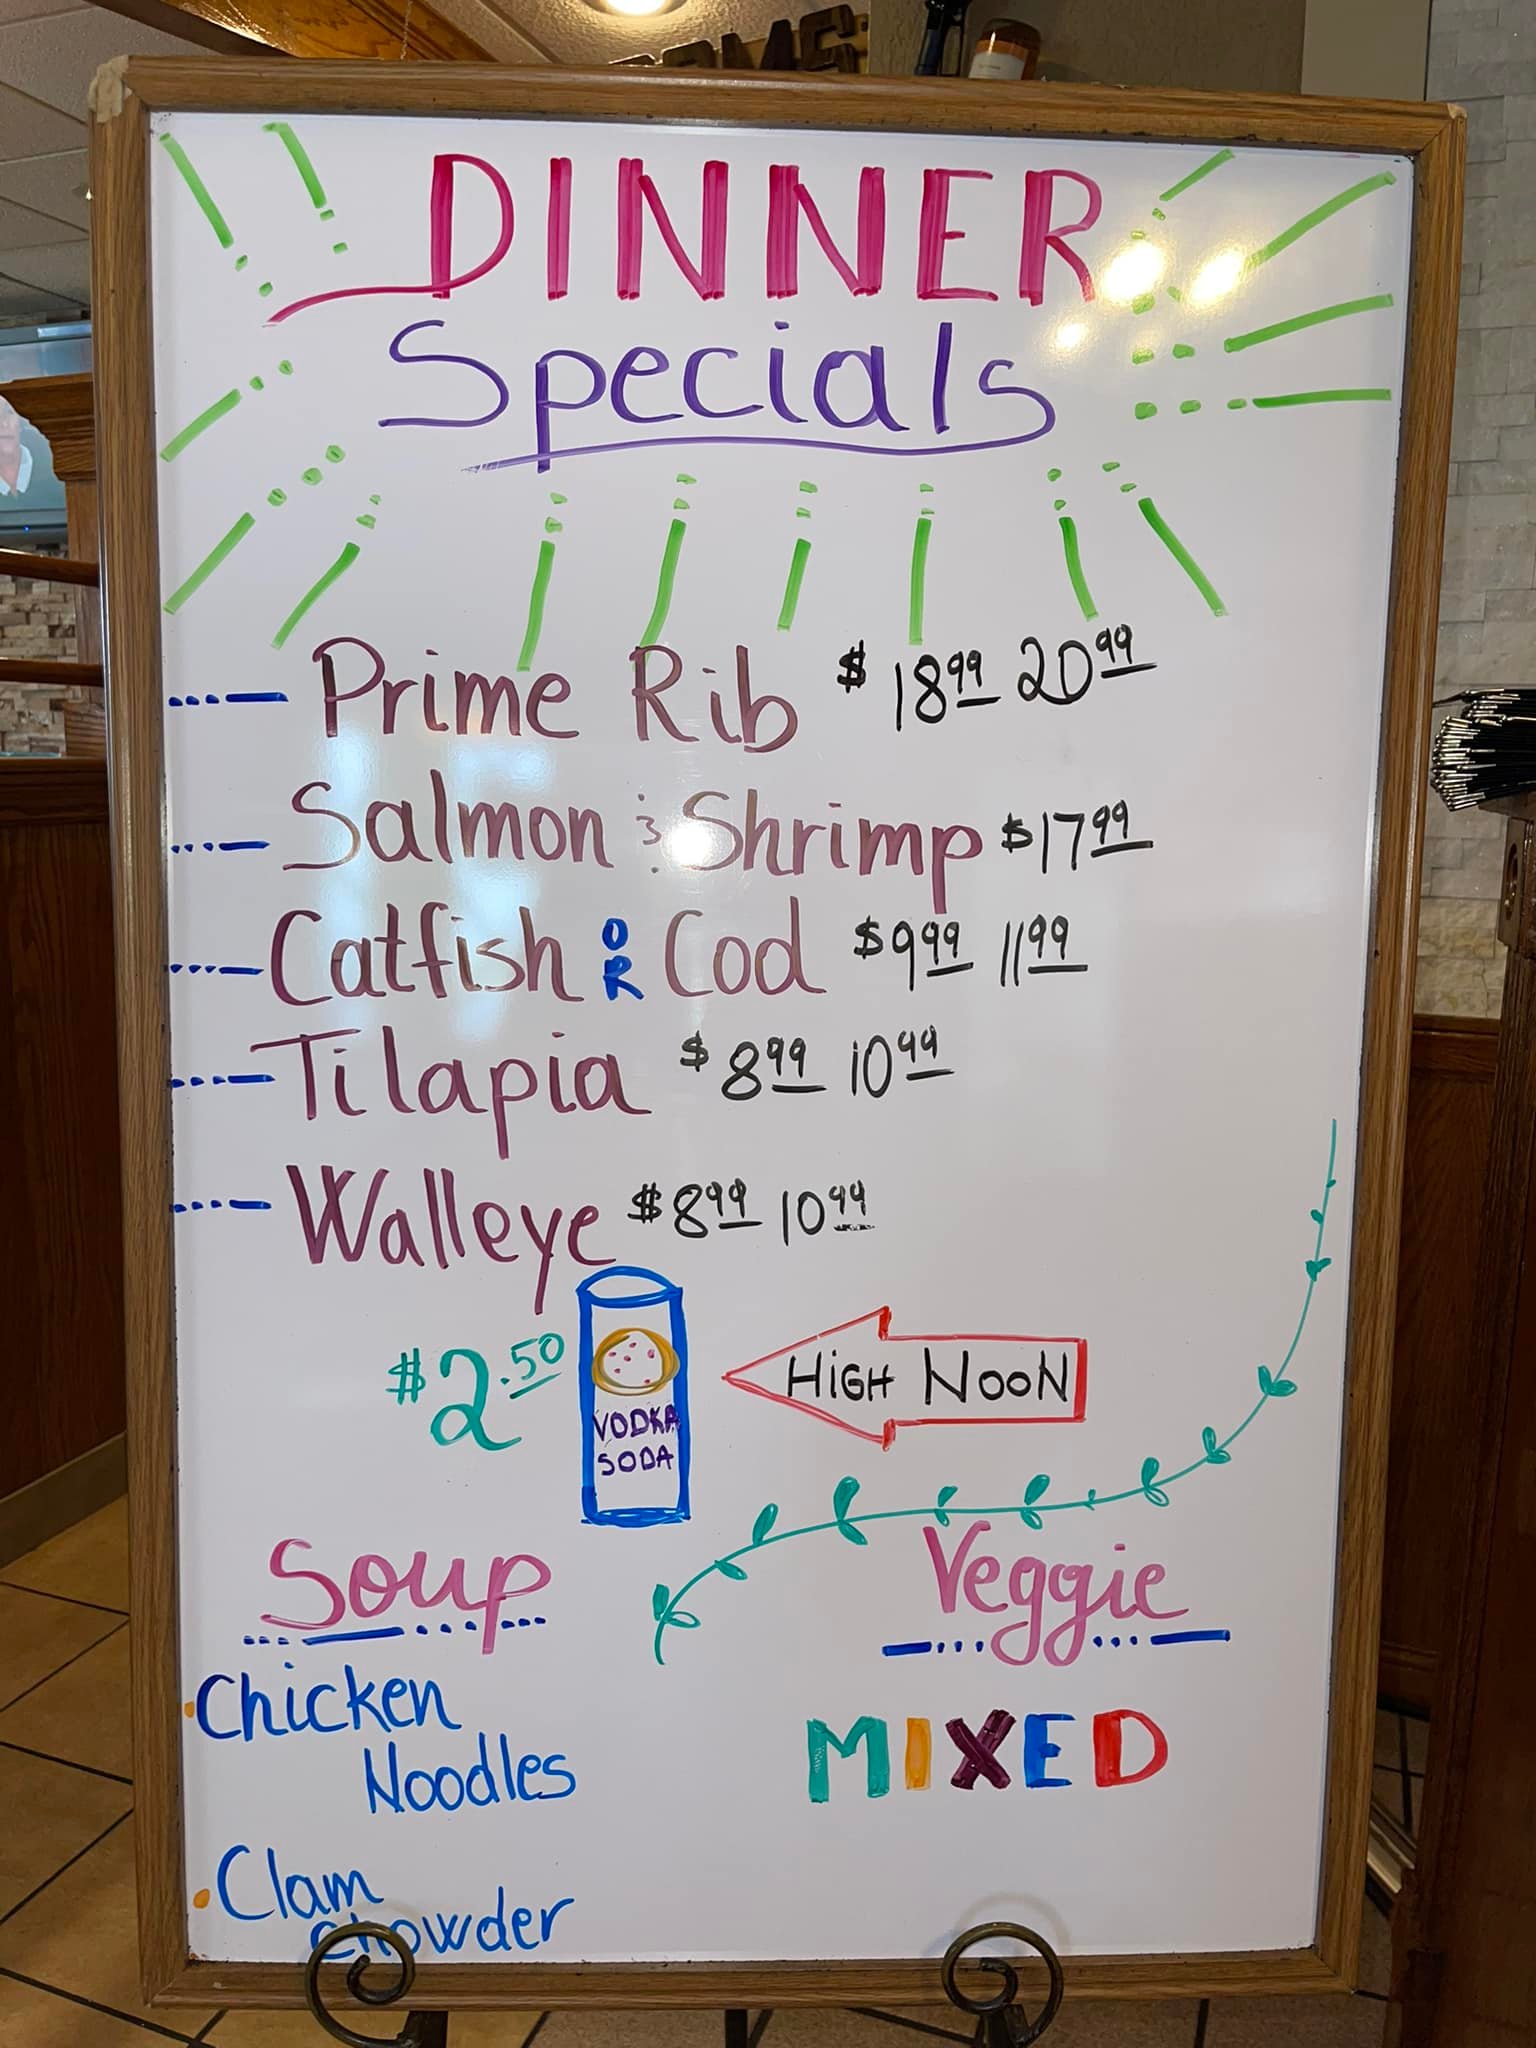 DINNER
Specials
Prime Rib $ 18.99 20.99
Salmon & Shrimp $17.99
Catfish OR Cod $9.99 11.99
Tilapia $8.99 10.99
Walleye $8.99 10.99
$2.50
VODKA
SODA
HiGH NOON
Soup
Chicken
Noodles
Clam
Chowder
Veggie
MIXED